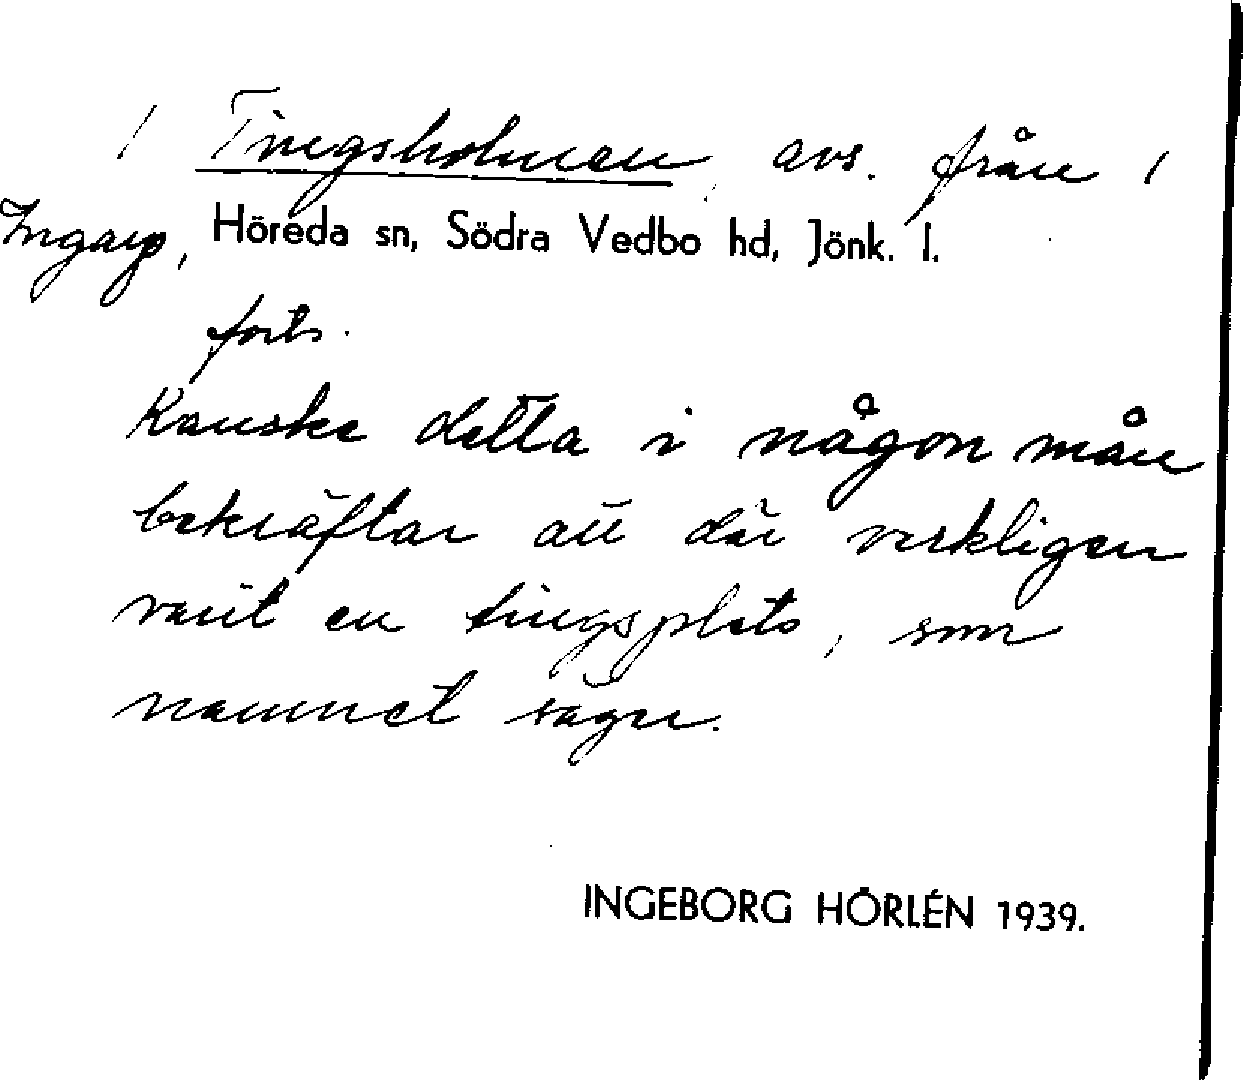 / Tingsholmen, avs. från /
Ingarp, Höreda sn, Södra Vedbo hd, Jönk. l.
forts.
Kanske detta i någon mån
bekräftar att där verkligen
varit en tingsplats, som
namnet säger.
INGEBORG HÖRLÉN 1939.